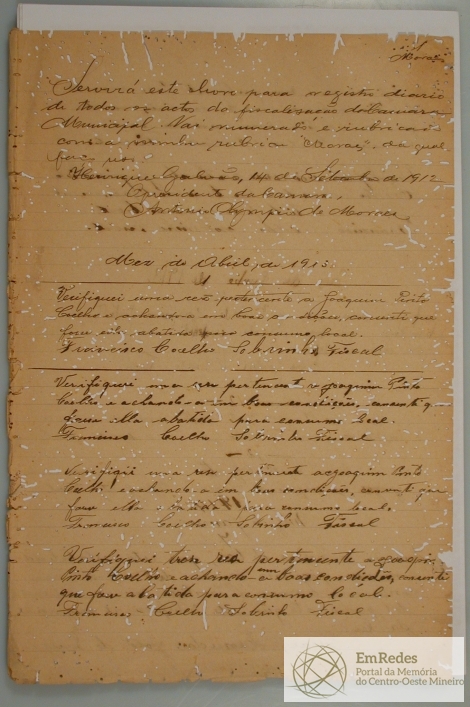 1
Moraes
Servirá este livro para registro diario
de todos os actos do fiscalisação da Camara
Municipal. Vai numerado e rubricado
com a minha rubrica "Moraes", da qual
faço uso.
Henrique Galvão, 14 de de 1912
O Presidente da Camara,
Antonio Olympio de Moraes
Mez de Abril de 1913
1
Verifiquei uma rez pertencente a Joaquim Pinto
Coelho e achando-a em boas condições, consenti que
fosse ella abatida para consumo local.
Francisco Coelho Sobrinho Fiscal
Verifiquei uma rez pertencente a Joaquim Pinto
Coelho e achando-a em boas condições, consenti que
fosse ella abatida para consumo local.
Francisco Coelho Sobrinho Fiscal
Verifiquei uma rez pertencente a Joaquim Pinto
Coelho e achando-a em boas condições, consenti que
fosse ella abatida para consumo local.
Francisco Coelho Sobrinho Fiscal
Verifiquei tres rez pertencente a Joaquim
Pinto Coelho e achando-a em boas condições, consenti
que fose abatida para consumo local.
Francisco Coelho Sobrinho Fiscal
EmRedes
Portal da Memória
do Centro-Oeste Mineiro